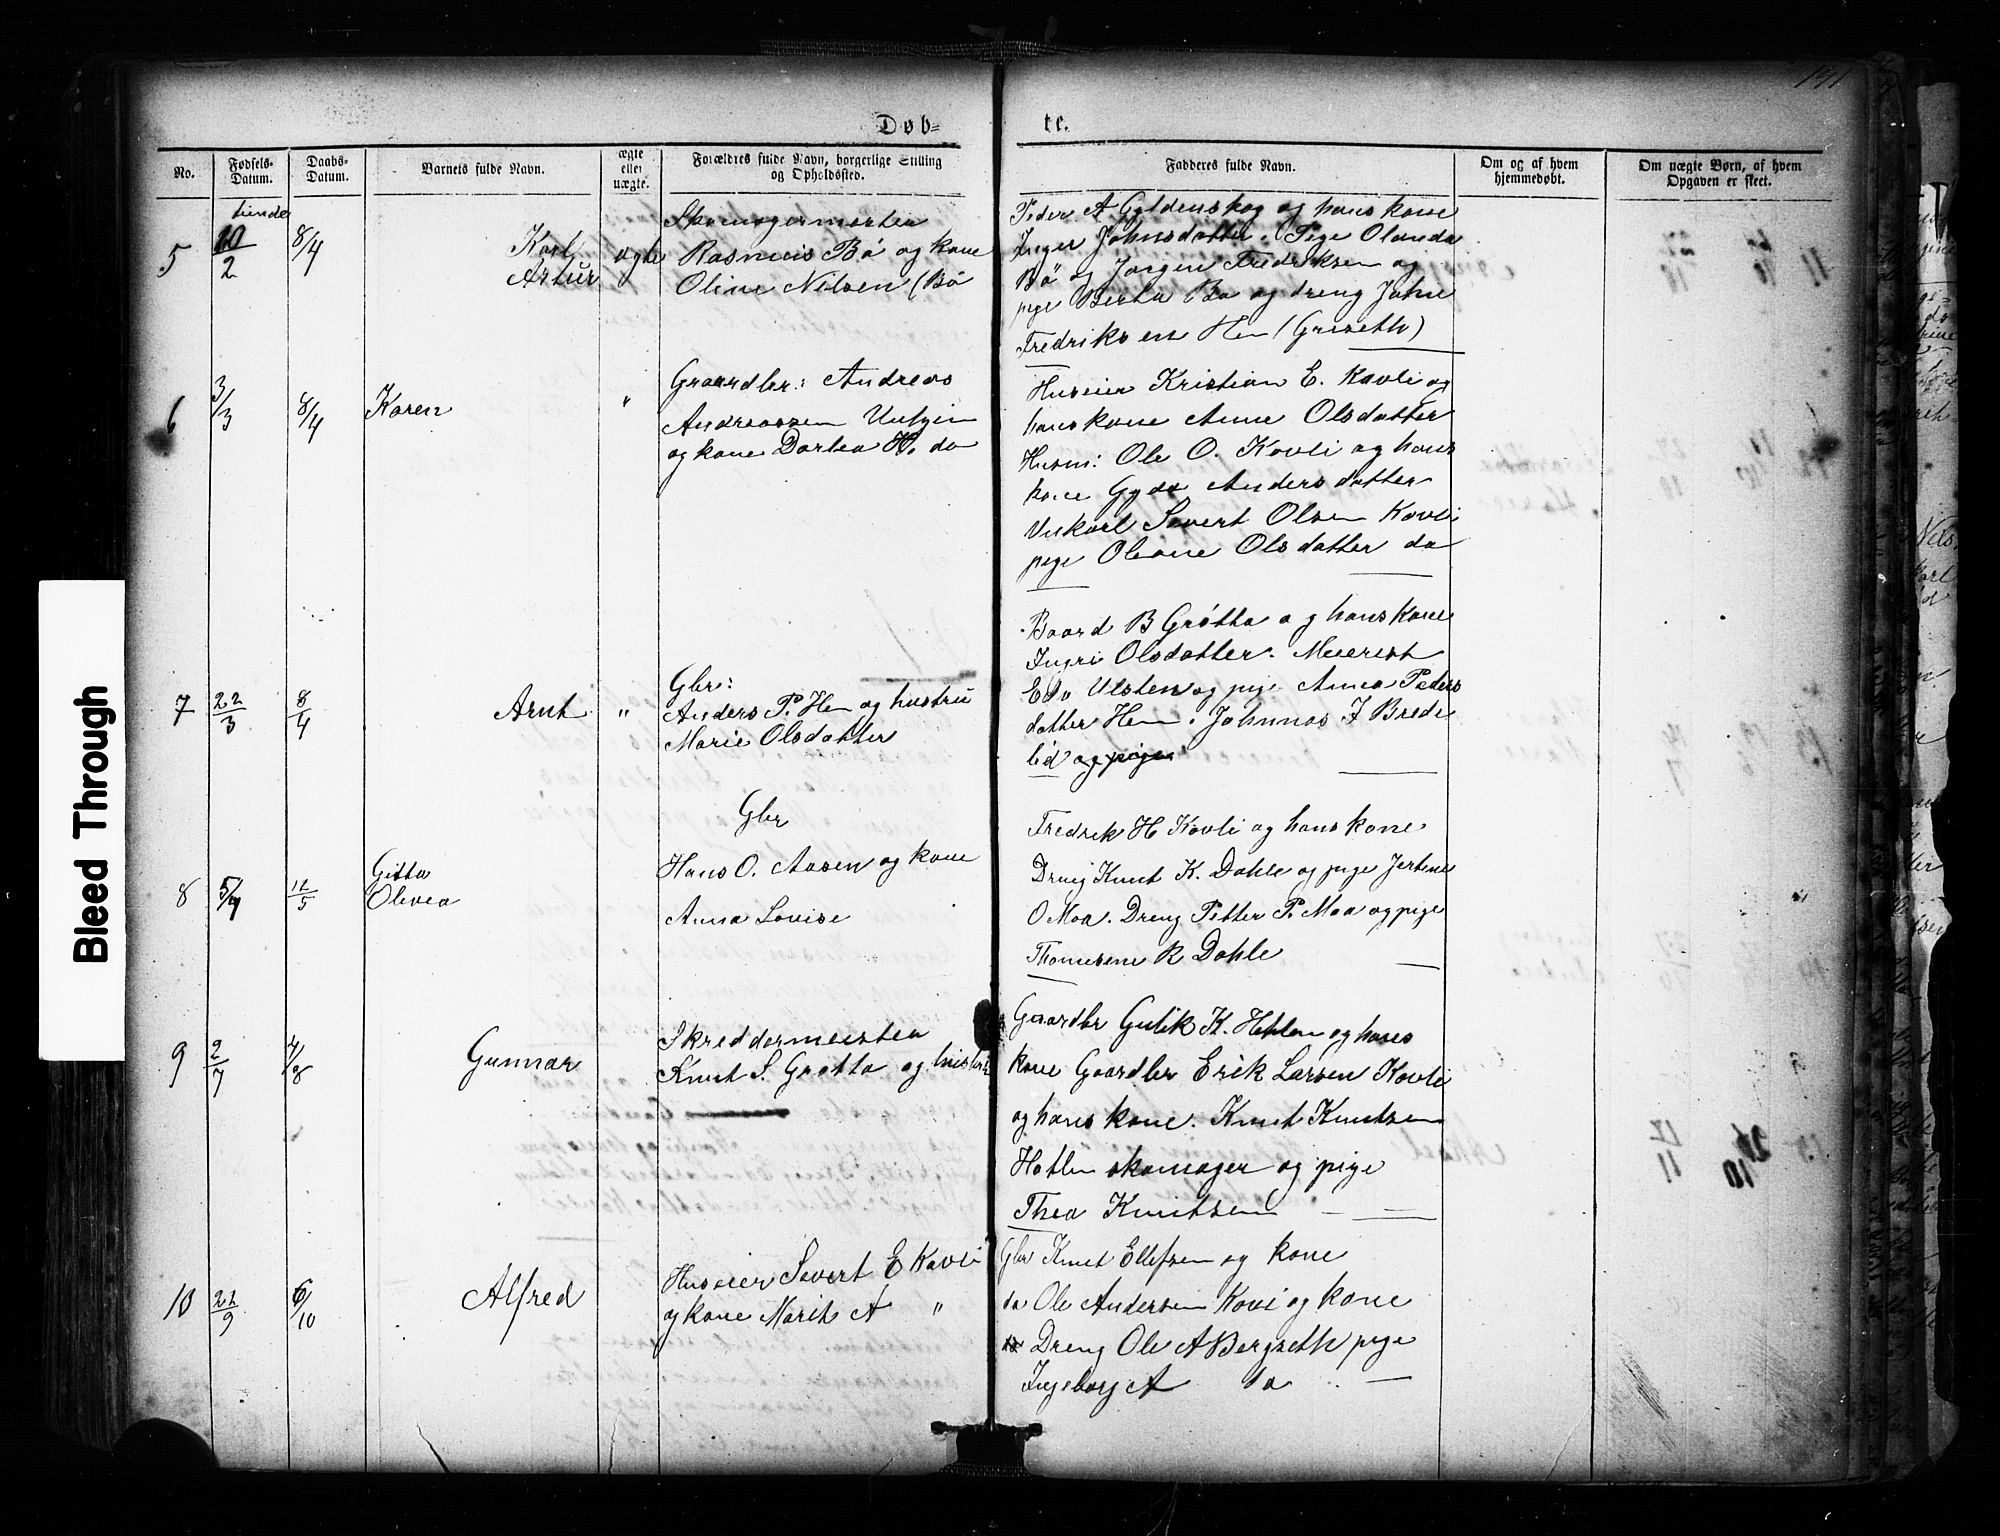 191
Døb-
te.
No.
Fødsels-
Datum.
Daabs-
Datum.
Barnets fulde Navn.
ægte
eller
uægte.
Forældres fulde Navn, borgerlige Stilling
og Opholdssted.
Fadderes fulde Navn.
Om og af hvem
hjemmedøbt.
Om uægte Børn, af hvem
Opgaven er skeet.
5
tiende
10/2
8/4
Karl
Artur
ægte
Skomagermester
Rasmus Bö og kone
Oline Nilsen (Bö
Peder A Gyldenskog og hans kone
Inger Johnsdatter. Pige Olanda
Bö og Jørgen Fredriksen og
pige Berta Bö og dreng Johne
Fredriksen Hen (Griseth)
6
3/3
8/4
Karen
"
Gaardbr: Andreas
Andreassen
og kone Dortea H. do
Huseier Kristian E. Kavli og
hans kone Anne Olsdatter
Husm: Ole O. Kavli og hans
kone Gyda Andersdatter
Ungkarl Severt Olsen Kavli
pige Oleane Olsdatter do
7
22/3
8/4
Arnt
"
Gbr:
Anders P. Hen og hustru
Marie Olsdatter
Baard B Grøtta og hans kone
Ingri Olsdatter. Meierist
Edv Ulsten og pige Anna Peders
datter Hen. Johnnas J Brede
lid og pige
8
5/4
12/5
Gitta
Olivea
Gbr
Hans O. Aasen og kone
Anna Lovise
Fredrik H Kavli og hans kone
Dreng Knut K. Dahle og pige Jertine
O Moa. Dreng Petter P. Moa og pige
Thomasine R Dahle
9
2/7
4/8
Gunnar
Skreddermester
Knut S. Grøtta og hustru
Gaardbr Gulik K. Hatlen og hans
kone Gaardbr Erik Larsen Kavli
og hans kone. Knut Knutsen
Hatlen skomager og pige
Thea Knutsen
10
22/9
6/10
Alfred
Huseier Severt E Kavli
og kone Marit A "
Gbr Knut Ellefsen og kone
do Ole Andersen Kavli og kone
Dreng Ole A Bergseth pige
Ingeborg A do
Bleed Through